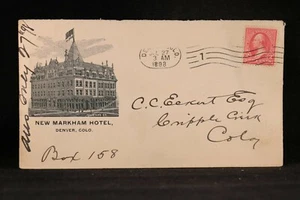 NEW MARKHAM HOTEL,
DENVER, COLO.
3 AM
1898
1
C.C. Eckert Esq
Cripple Creek
Colo
Box 158